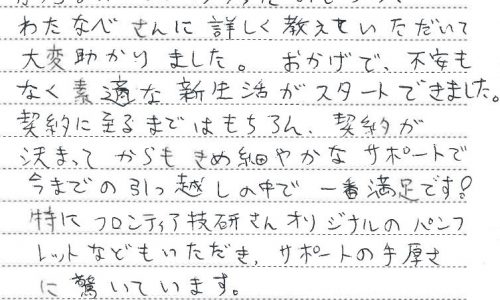 わたなべさんに詳しく教えていただいて
大変助かりました。おかげで、不安も
なく素適な新生活がスタートできました。
契約に至るまではもちろん、契約が
決まってからもきめ細やかなサポートで
今までの引っ越しの中で一番満足です!
特にフロンティア技研さんオリジナルのパンフ
レットなどもいただき、サポートの手厚さ
に驚いています。